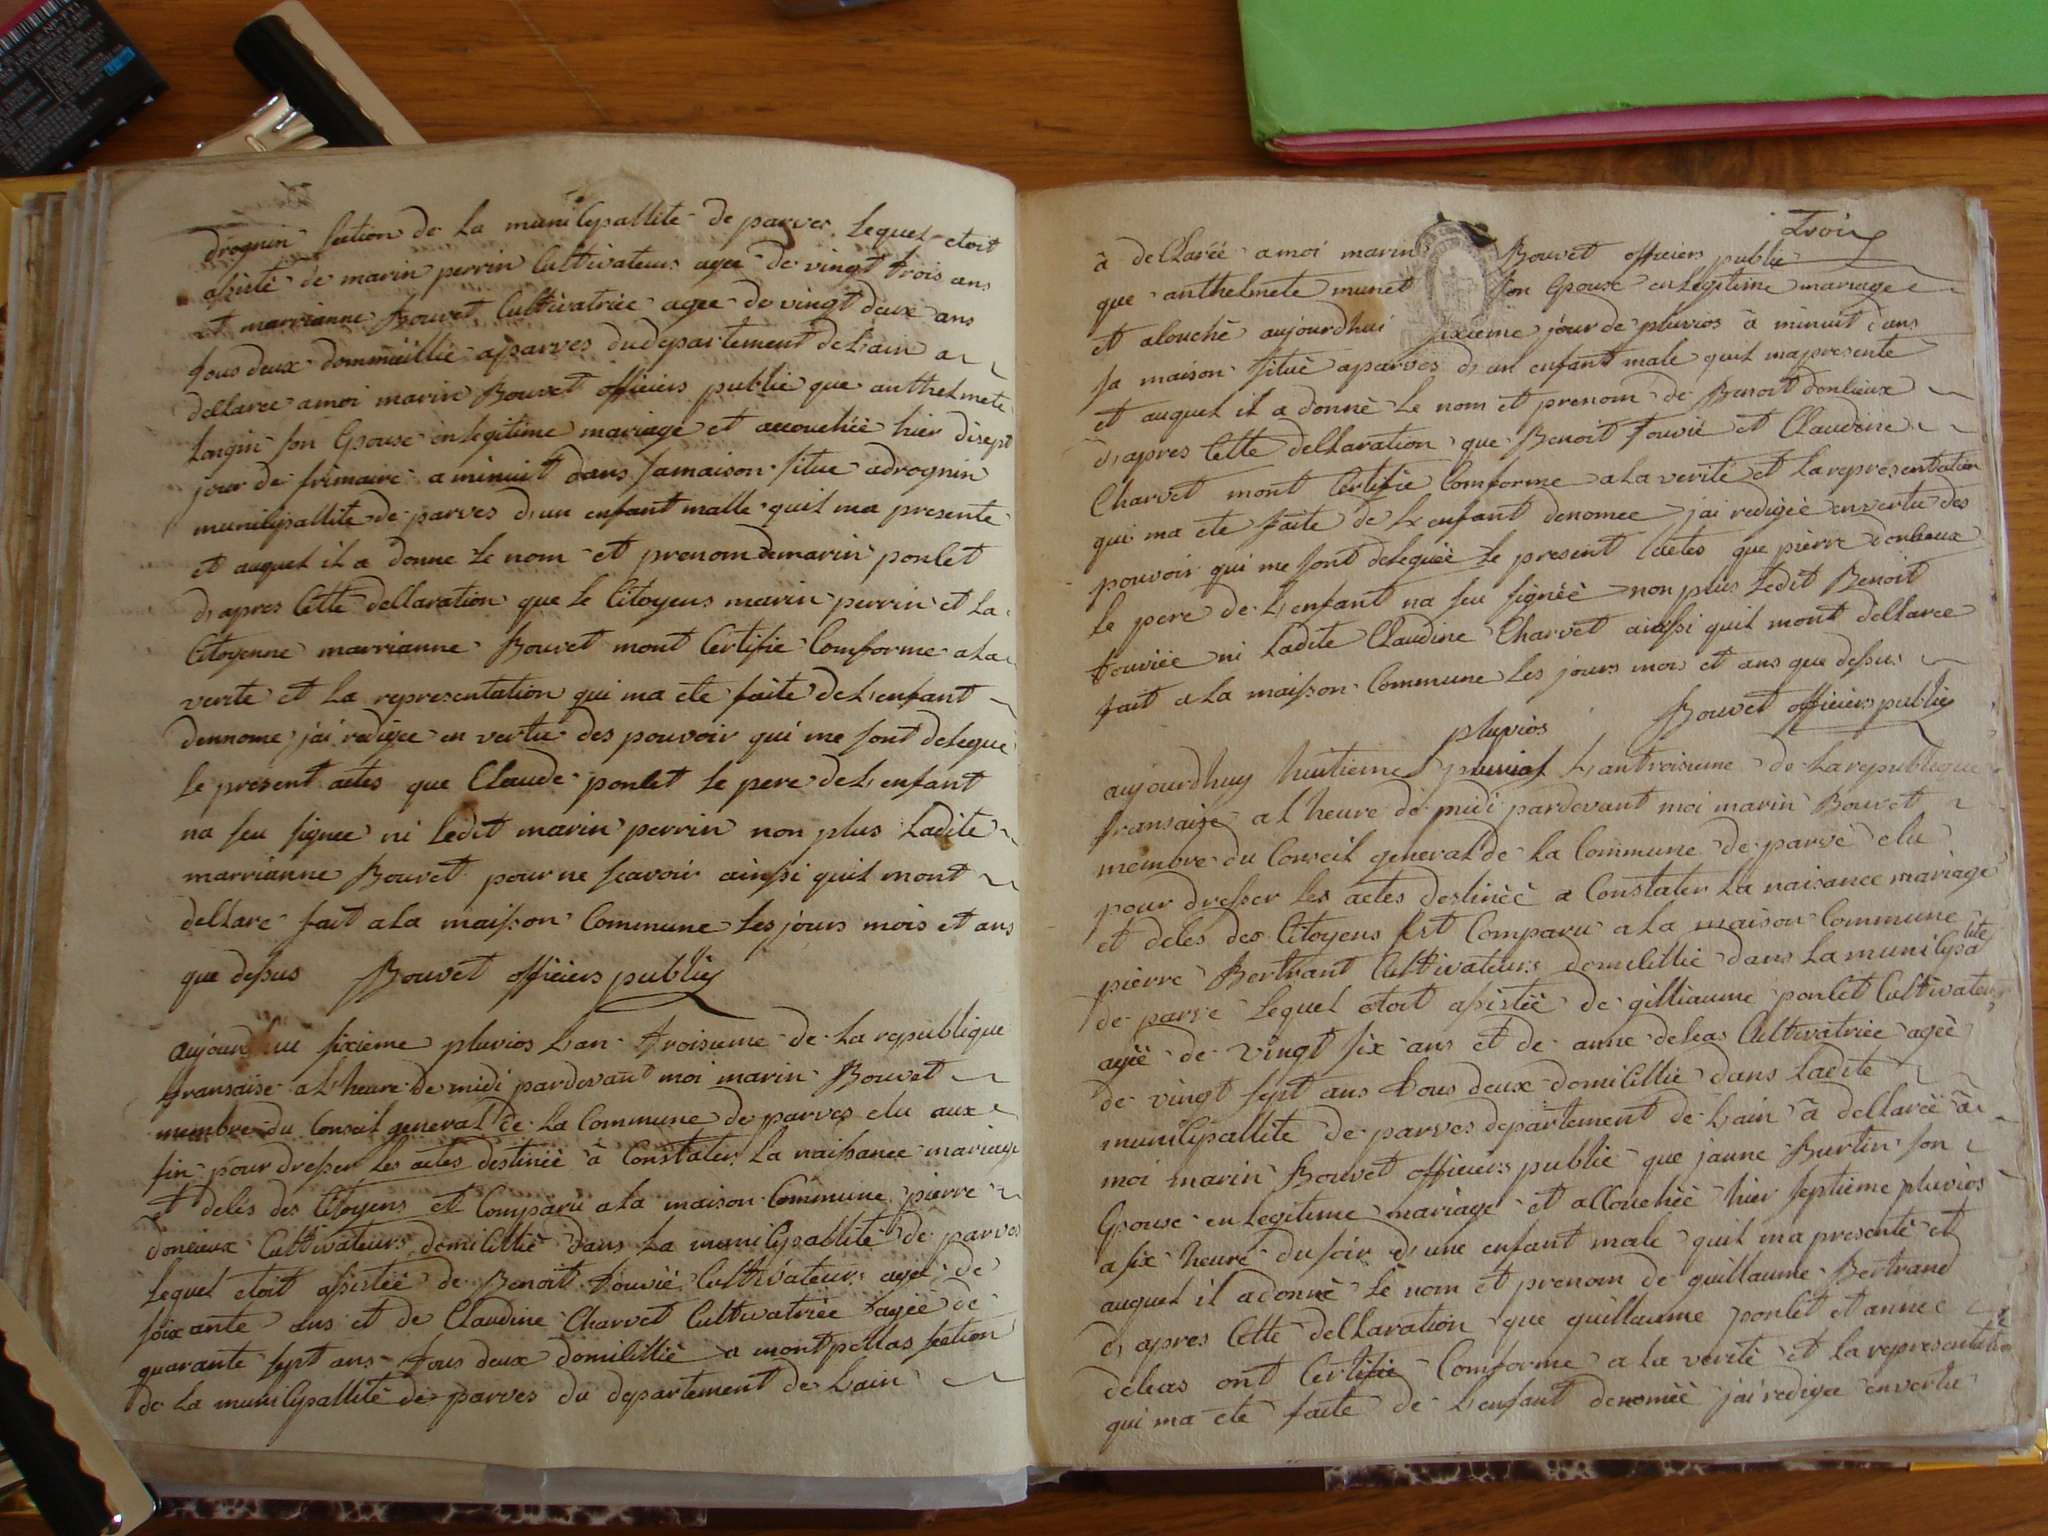 drognin section de La municipallite de parves Lequel etoit
assiste de marin perrin Cultivateurs agee de vingt trois ans
et marrianne Bouvet Cultivatrice agee de vingt deux ans
tous deux dommicillie aparves du departement de Lain a
dellaree amoi marin Bouvet officiers public que anthelmete
Longin son Epouse en legitime mariage et accouchée hier disept
jour de frimaire a minuit dans samaison situe adrognin
municipallite de parves d'un enfant malle quil ma presente
et auquel il a donne Le nom et prenom de marin ponlet
d'apres Cette dellaration que Le Citoyens marin perrin et La
Citoyenne marrianne Bouvet mont Certifie Comforme a la
verite et La representation qui ma ete faite de L'enfant
dennome j'ai redigee en vertu des pouvoir qui me sont delegue
Le present actes que Claude ponlet Le pere de L'enfant
na seu signee ni Ledit marin perrin non plus Ladite
marrianne Bouvet pour ne scavoir ainssi quil mont
dellare fait a La maisson Commune Les jours mois et ans
que dessus Bouvet officiers public
aujourdhu sixieme pluvios Lan troisieme de La republique
fransaise a L'heure de midi pardevant moi marin Bouvet
membre du Conseil general de La Commune de parves elu aux
fin pour dresser Les actes destinée à Constater La naissance mariage
et deles des Citoyens et Comparu a la maison Commune pierre
donlieux Cultivateurs domicillié dans La municipallite de parves
Lequel etoit assistée de Benoit touvié Cultivateurs agee de
soixante ans et de Claudine Charvet Cultivatrice agée de
quarante sept ans tous deux domicillié a montpellas section
de La municipallité de parves du departement de Lain
troix
à dellarée a moi marin Bouvet officiers public
que anthelmete munet son Epouse en Legitime mariage
et alouché aujourdhui sixieme jour de pluvios à minuit dans
sa maison situé aparves d'un enfant male quil mapresente
et auquel il a donné Le nom et prenom de Benoit donlieux
d'apres Cette dellaration que Benoit touvié et Claudine
Charvet mont Certifie Comforme a La verité et La representation
qui ma ete faite de L'enfant denomee j'ai redigée envertu des
pouvoir qui me sont deleguée Le present actes que pierre donlieux
Le pere de L'enfant na seu signée non plus Ledit Benoit
touviée ni Ladite Claudine Charvet ainssi quil mont dellaree
fait a La maisson Commune Les jours mois et ans que dessus
Bouvet officiers public
pluvios
aujourdhuy huitieme L'antroisieme de La republique
fransaise a L'heure de midi pardevant moi marin Bouvet
membre du Conseil general de La Commune de parve elu
pour dresser Les actes destinéé a Constater La naisance mariage
et deles des Citoyens Est Comparu a La maison Commune
pierre Bertrant Cultivateurs domicillié dans La municipalité
de parve Lequel etoit assistée de gilliaume ponlet Cultivateurs
agée de vingt six ans et de anne deleas Cultivatrice agée
de vingt sept ans tous deux domicillie dans Ladite
municipallite de parves departement de Lain à dellarée à
moi marin Bouvet officiers public que janne Burtin son
Epouse en Legitime mariage et allouchée hier septieme pluvios
a six heure du soir d'une enfant male quil ma presenté et
auquel il adonné Le nom et prenom de guillaume Bertrand
d'apres Cette dellaration que guillaume ponlet et anne
deleas ont Certifie Comforme a La verité et La representation
qui ma ete faite de L'enfant denomée j'ai redigee envertu